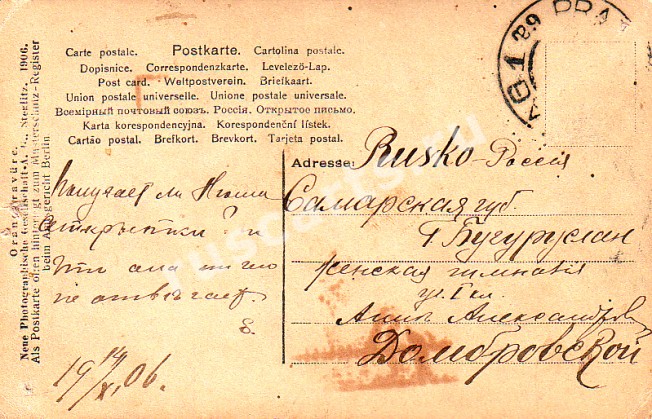 Carte postale. Postkarte. Cartolina postale.
Dopisnice. Correspondenzkarte. Levelező-Lap.
Post card. Weltpostverein. Briefkaart.
Union postale universelle. Unione postale universale.
Всемірный почтовый союзъ. Россія. Открытое письмо.
Karta korespondencyjna. Korespondenční lístek.
Cartão postal. Brefkort. Brevkort. Tarjeta postal.
Orangravüre.
Neue Photographische Gesellschaft-A. G., Steglitz. 1906.
Als Postkarte offen hinterlegt zum Musterschutz-Register
beim Amtsgericht Berlin
PRA
Adresse:
Rusko-Россія
Самарская губ.
г. Бугурусланъ
женская гимназія
Анна Александров
Домбровской
Получает ли Нюша
открытки? и
что она ничего
не отвѣчает
19 19/X 06.
ruscarts.ru